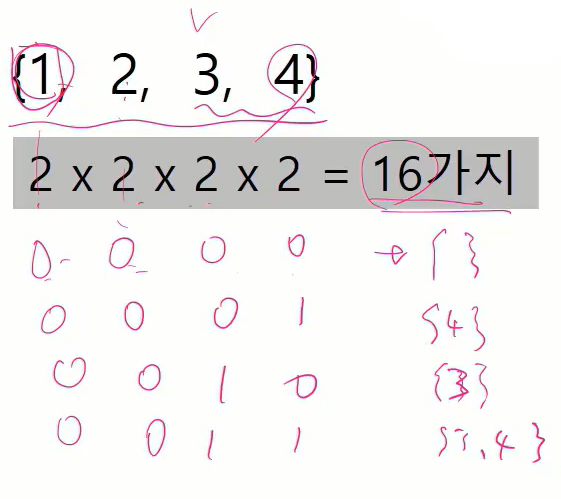 {1, 2, 3, 4}
2 x 2 x 2 x 2 = 16가지
0 0 0 0 → { }
0 0 0 1 {4}
0 0 1 0 {3}
0 0 1 1 {3, 4}